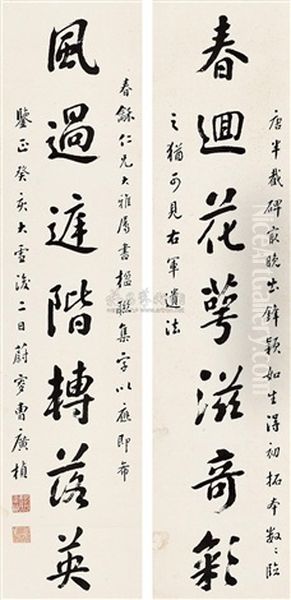 唐半截碑最晚出鋒穎如生得初拓本數數臨
春迴花萼滋奇彩
之猶可見右軍遺法
春龢仁兄大雅屬書楹聯集字以應即希
風過遲階轉落英
鑒正癸亥大雪後二日蔚穹曹廣楨